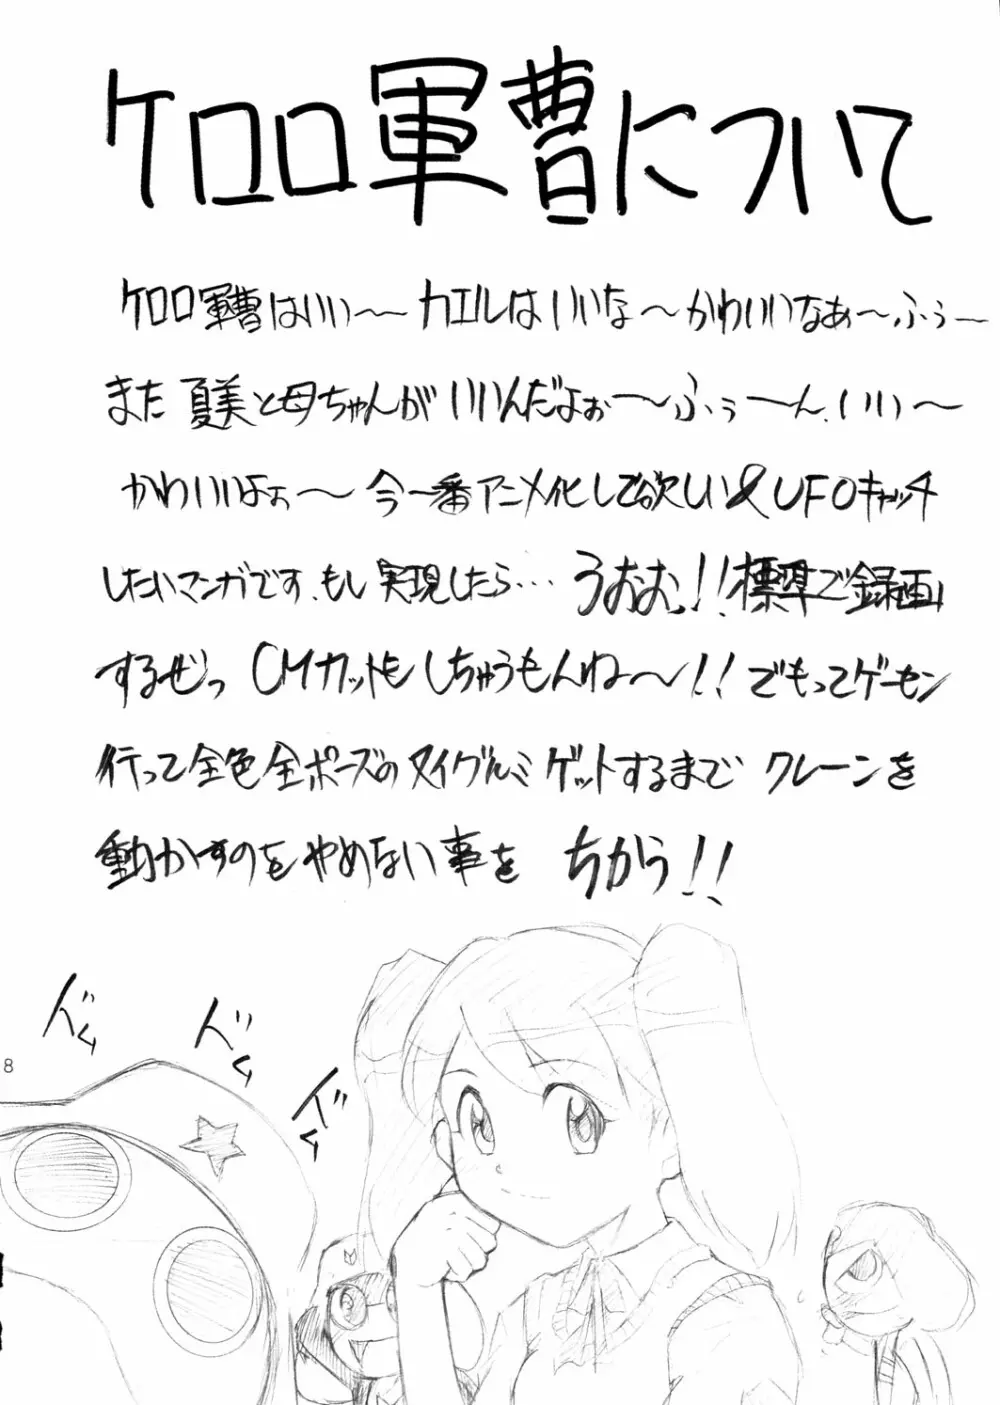 ケロロ軍曹について
ケロロ軍曹はいい〜〜カエルはいいな〜かわいいなぁ〜ふぅー
また夏美と母ちゃんがいいんだよぉ〜〜ふぅーん、いい〜
かわいいよぉ〜今一番アニメ化して欲しい&UFOキャッチ
したいマンガです、もし実現したら…うおおっ!!標準で録画
するぜっCMカットもしちゃうもんね〜!!でもってゲーセン
行って全色全ポーズのヌイグルミゲットするまでクレーンを
動かすのをやめない事をちかう!!
ドム
ドム
ドム
8